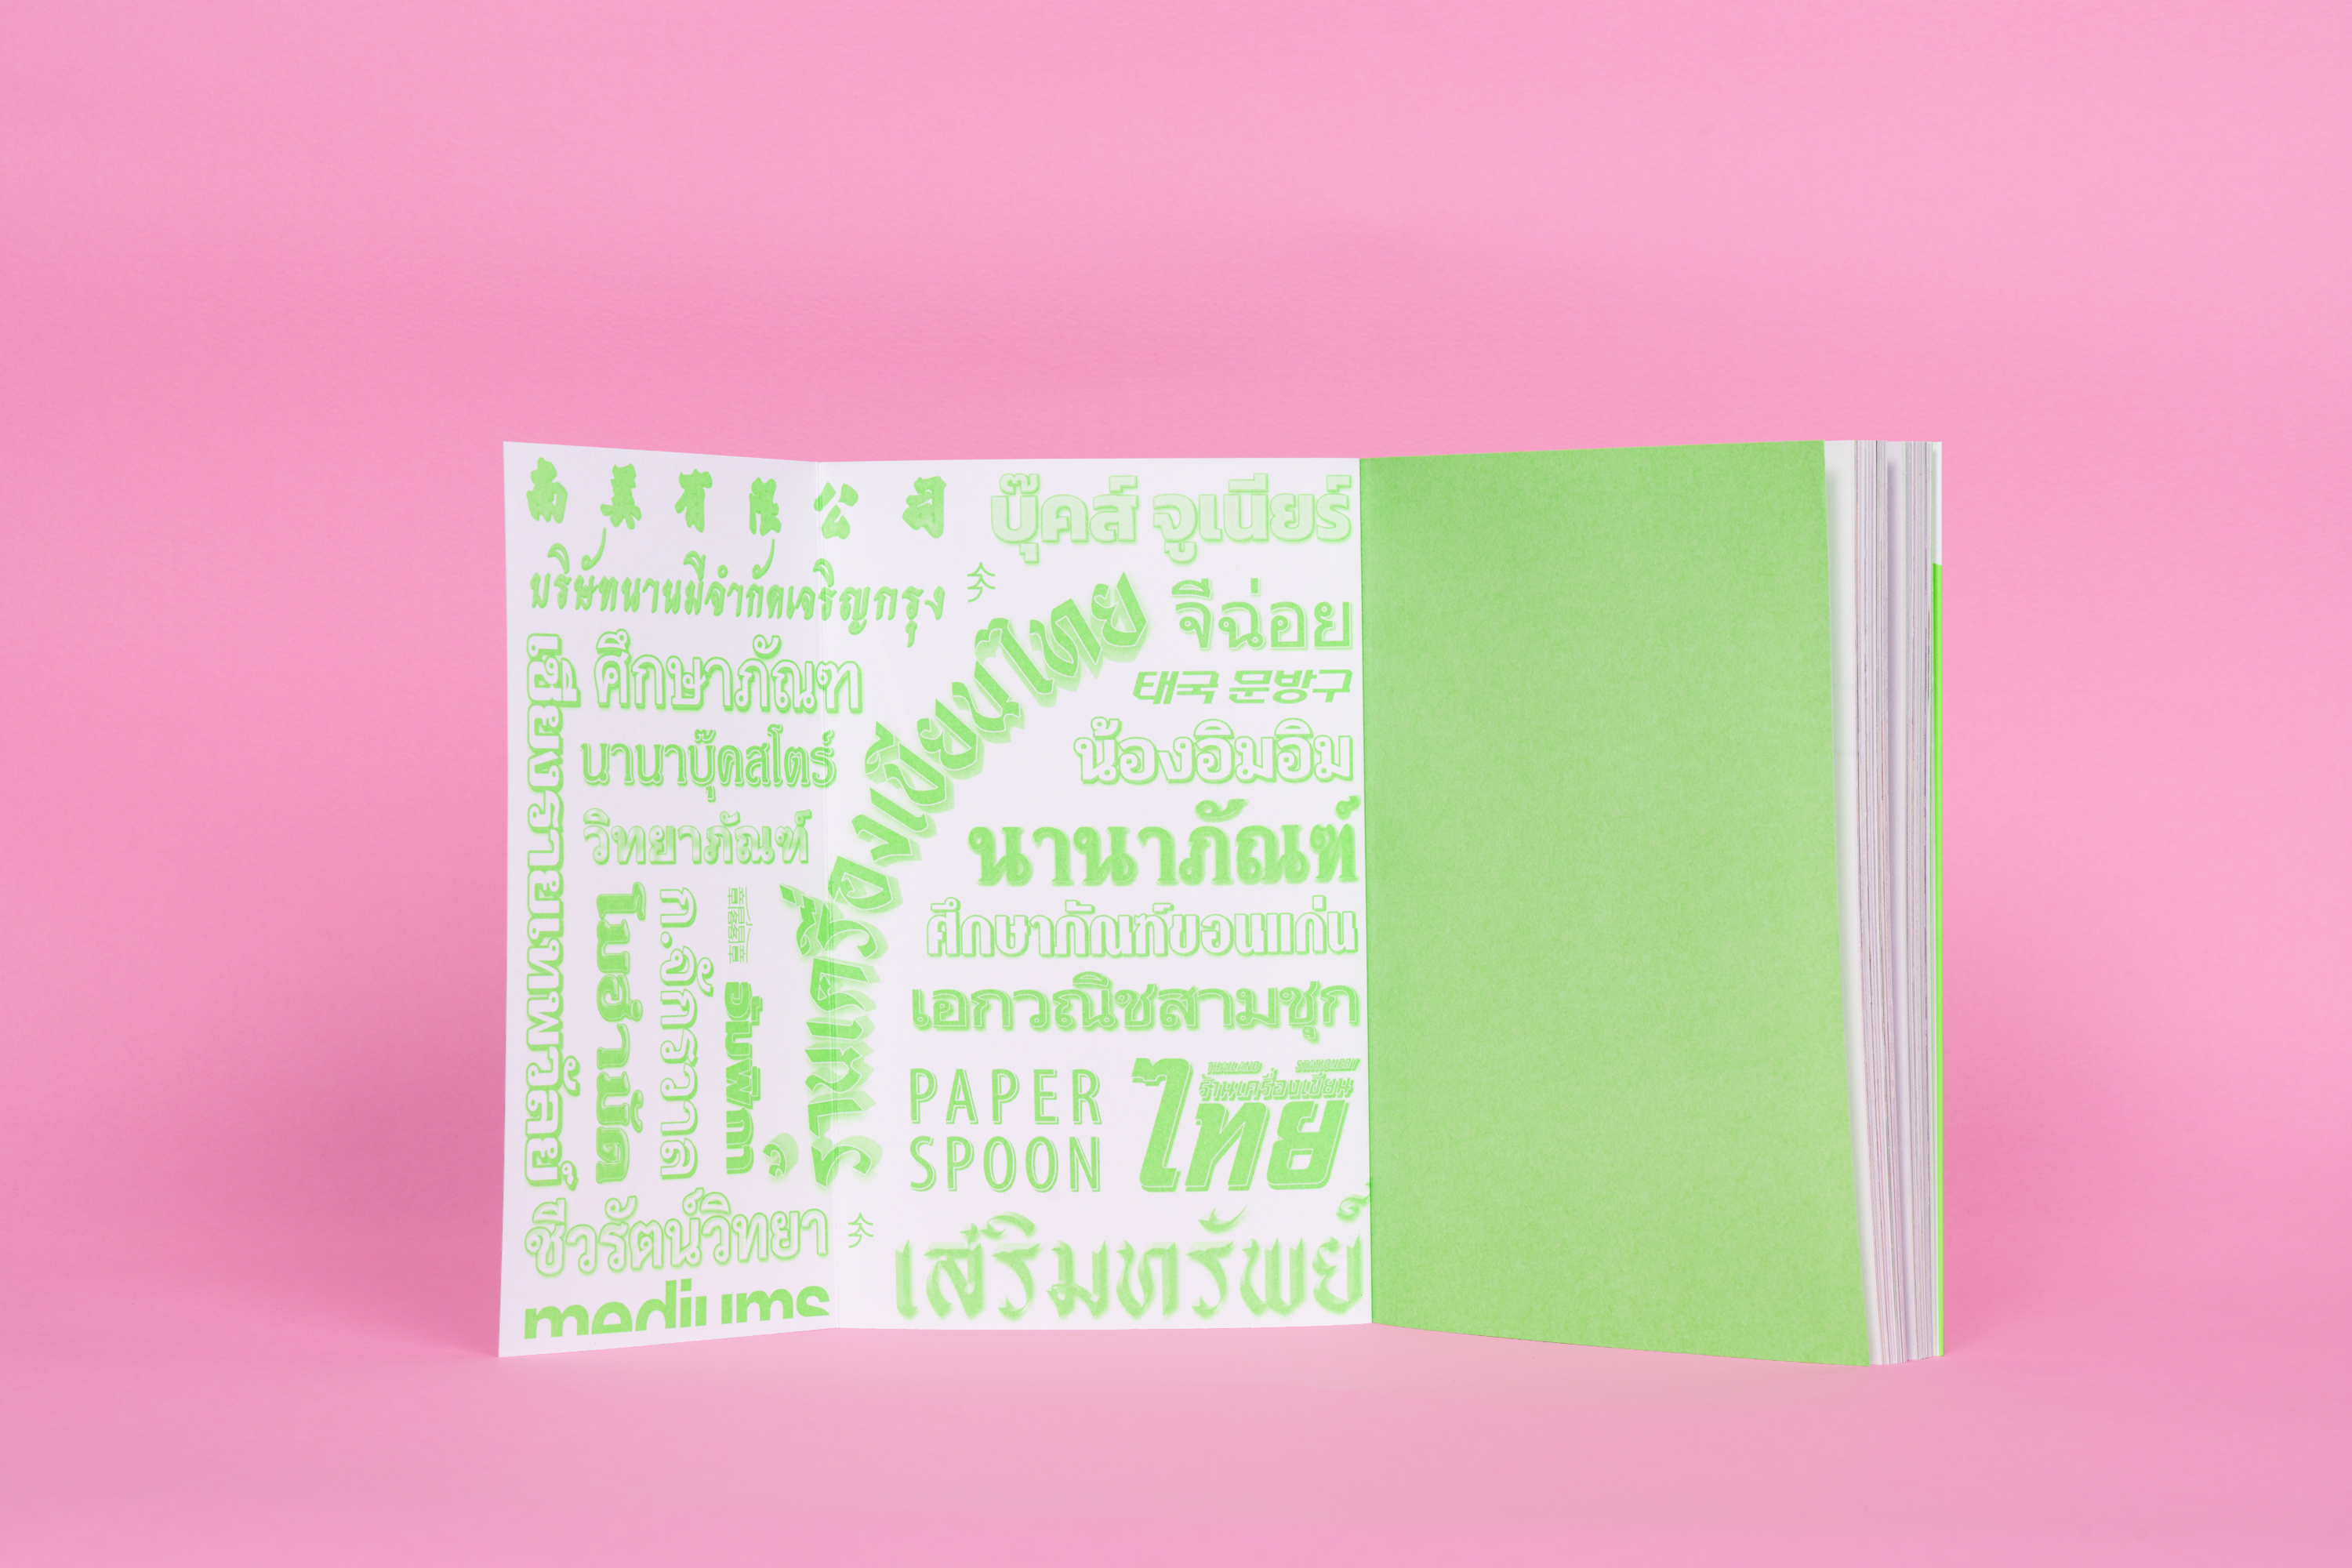 南美有限公司
บริษัทนานมีจำกัดเจริญกรุง
เซี่ยงจรายเทพวัลย์
ศึกษาภัณฑ์
นานาบุ๊คสโตร์
วิทยาภัณฑ์
โมฮำมัด
ก.จักรวาล
อิมพีกก
ชีวรัตน์วิทยา
mediums
ร้านเครื่องเขียนไทย
บุ๊คส์ จูเนียร์
จีฉ่อย
태국 문방구
น้องอิมอิม
นานาภัณฑ์
ศึกษาภัณฑ์ขอนแก่น
เอกวณิชสามชุก
PAPER
SPOON
THAILAND STATIONERY
ร้านเครื่องเขียน
ไทย
เสริมทรัพย์